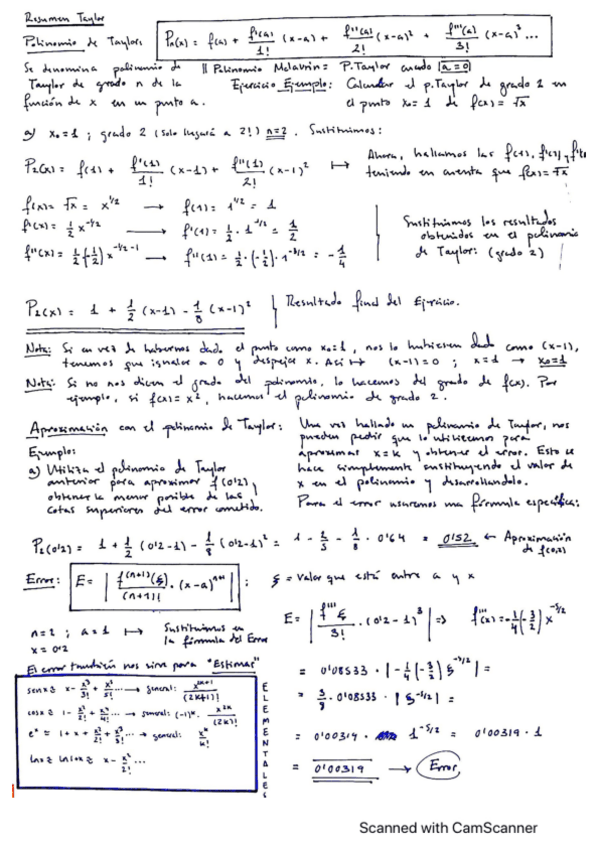 Resumen Taylor
Polinomio de Taylor: Pn(x) = f(a) + f'(a)/1! (x-a) + f''(a)/2! (x-a)² + f'''(a)/3! (x-a)³ ...
Se denomina polinomio de Taylor de grado n de la función de x en un punto a.
Polinomio Mclavrin = P. Taylor cuando a=0
Ejercicio Ejemplo: Calcular el p. Taylor de grado 2 en el punto x₀=1 de f(x) = √x
a) x₀=1 ; grado 2 (solo llegará a 2!) n=2. Sustituimos:
P₂(x) = f(1) + f'(1)/1! (x-1) + f''(1)/2! (x-1)² ↦ Ahora, hallamos las f(1), f'(1) y f''(1) teniendo en cuenta que f(x)=√x
f(x) = √x = x^1/2 → f(1) = 1^1/2 = 1
f'(x) = 1/2 x^-1/2 → f'(1) = 1/2 · 1^-1/2 = 1/2
f''(x) = 1/2 (-1/2) x^-1/2-1 → f''(1) = 1/2 · (-1/2) · 1^-3/2 = -1/4
Sustituimos los resultados
obtenidos en el polinomio
de Taylor: (grado 2)
P₂(x) = 1 + 1/2 (x-1) - 1/8 (x-1)² Resultado final del Ejercicio.
Nota: Si en vez de habernos dado el punto como x₀=1, nos lo hubiesen dado como (x-1),
tenemos que igualar a 0 y despejar x. Así ↦ (x-1)=0 ; x=1 → x₀=1
Nota: Si no nos dicen el grado del polinomio, lo hacemos del grado de f(x). Por
ejemplo, si f(x) = x², hacemos el polinomio de grado 2.
Aproximación con el polinomio de Taylor:
Una vez hallado un polinomio de Taylor, nos
pueden pedir que lo utilicemos para
aproximar x=k y obtener el error. Esto se
hace simplemente sustituyendo el valor de
x en el polinomio y desarrollándolo.
Para el error usaremos una fórmula específica:
Ejemplo:
a) Utiliza el polinomio de Taylor
anterior para aproximar f(0'2) y
obtener la menor posible de las
cotas superiores del error cometido.
P₂(0'2) = 1 + 1/2 (0'2-1) - 1/8 (0'2-1)² = 1 - 2/5 - 1/8 · 0'64 = 0'52 ← Aproximación de f(0,2)
Error: E = | f^(n+1)(ξ)/(n+1)! · (x-a)^n+1 | ; ξ = valor que está entre a y x
n=2 ; a=1 ↦ Sustituimos en
x=0'2 la fórmula del Error
E = | f''' ξ/3! · (0'2-1)³ | => f'''(x) = -1/4 (-3/2) x^-5/2
El error también nos sirve para "Estimar"
= 0'08533 · | -1/4 (-3/2) ξ^-5/2 | =
= 3/8 · 0'08533 · | ξ^-5/2 | =
= 0'00319 · 1^-5/2 = 0'00319 · 1
= 0'00319 → Error
senx ≈ x - x³/3! + x⁵/5! ... → general: x^2k+1/(2k+1)!
cosx ≈ 1 - x²/2! + x⁴/4! ... → general: (-1)^k · x^2k/(2k)!
e^x ≈ 1 + x + x²/2! + x³/3! ... → general: x^k/k!
lnx ≈ ln1+x ≈ x - x²/2! ...
ELEMENTALES
Scanned with CamScanner